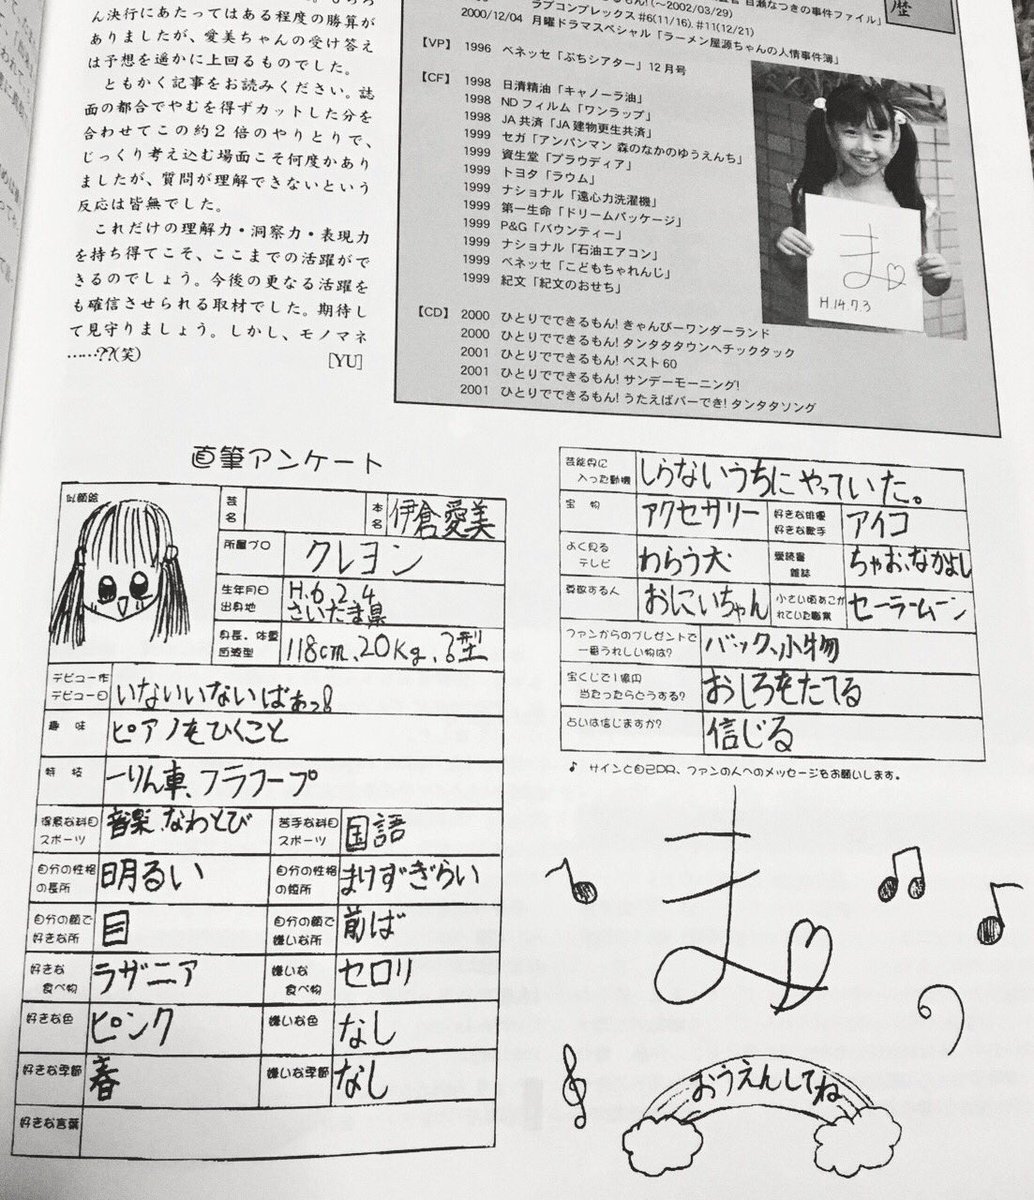 ん決行にあたってはある程度の勝算が
ありましたが、愛美ちゃんの受け答え
は予想を遥かに上回るものでした。
ともかく記事をお読みください。誌
面の都合でやむを得ずカットした分を
合わせてこの約2倍のやりとりで、
じっくり考え込む場面こそ何度かあり
ましたが、質問が理解できないという
反応は皆無でした。
これだけの理解力・洞察力・表現力
を持ち得てこそ、ここまでの活躍がで
きるのでしょう。今後の更なる活躍を
も確信させられる取材でした。期待し
て見守りましょう。しかし、モノマネ
……??(笑) [YU]
歴
ラブコンプレックス #6(11/16).#11(12/21)
2000/12/04 月曜ドラマスペシャル「ラーメン屋源ちゃんの人情事件簿」
【VP】 1996 ベネッセ「ぷちシアター」12月号
【CF】 1998 日清精油「キャノーラ油」
1998 NDフィルム「ワンラップ」
1998 JA共済「JA建物更生共済」
1999 セガ「アンパンマン 森のなかのゆうえんち」
1999 資生堂「プラウディア」
1999 トヨタ「ラウム」
1999 ナショナル「遠心力洗濯機」
1999 第一生命「ドリームパッケージ」
1999 P&G「バウンティー」
1999 ナショナル「石油エアコン」
1999 ベネッセ「こどもちゃれんじ」
1999 紀文「紀文のおせち」
【CD】 2000 ひとりでできるもん! きゃんびーワンダーランド
2000 ひとりでできるもん! タンタタタウンへチックタック
2001 ひとりでできるもん! ベスト60
2001 ひとりでできるもん! サンデーモーニング!
2001 ひとりでできるもん! うたえばパーでき! タンタタソング
ま
H.14.7.3
直筆アンケート
似顔絵
芸名
本名 伊倉愛美
所属プロ クレヨン
生年月日 出身地 H.6.2.4 さいたま県
身長、体重 血液型 118cm、20kg、B型
デビュー作 デビュー日 いないいないばあっ!
趣味 ピアノをひくこと
特技 一りん車、フラフープ
得意な科目 スポーツ 音楽、なわとび
苦手な科目 スポーツ 国語
自分の性格の長所 明るい
自分の性格の短所 まけずぎらい
自分の顔で好きな所 目
自分の顔で嫌いな所 前ば
好きな食べ物 ラザニア
嫌いな食べ物 セロリ
好きな色 ピンク
嫌いな色 なし
好きな季節 春
嫌いな季節 なし
好きな言葉
芸能界に入った動機 しらないうちにやっていた。
宝物 アクセサリー
好きな俳優 好きな歌手 アイコ
よく見るテレビ わらう犬
愛読書 雑誌 ちゃお、なかよし
尊敬する人 おにいちゃん
小さい頃あこがれていた職業 セーラームーン
ファンからのプレゼントで一番うれしい物は? バック、小物
宝くじで1億円当たったらどうする? おしろをたてる
占いは信じますか? 信じる
♪ サインと自己PR、ファンの人へのメッセージもお願いします。
ま
おうえんしてね